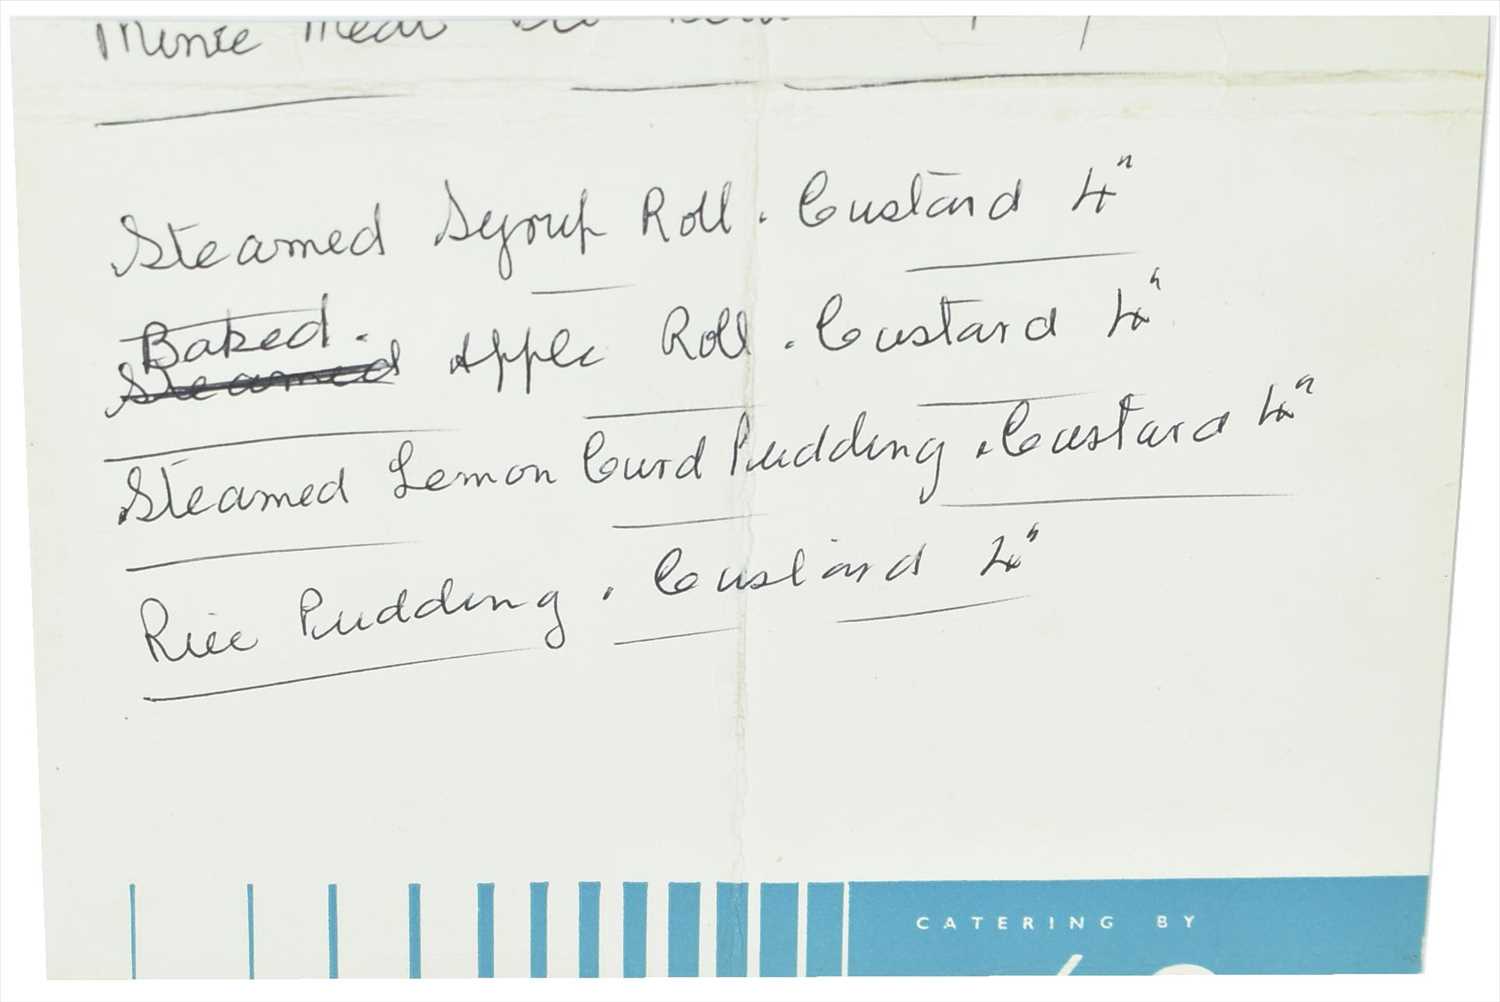 Mince Meat
Steamed Syrup Roll. Custard 4"
Baked.
Steamed Apple Roll. Custard 4"
Steamed Lemon Curd Pudding. Custard 4"
Rice Pudding. Custard 4"
CATERING BY